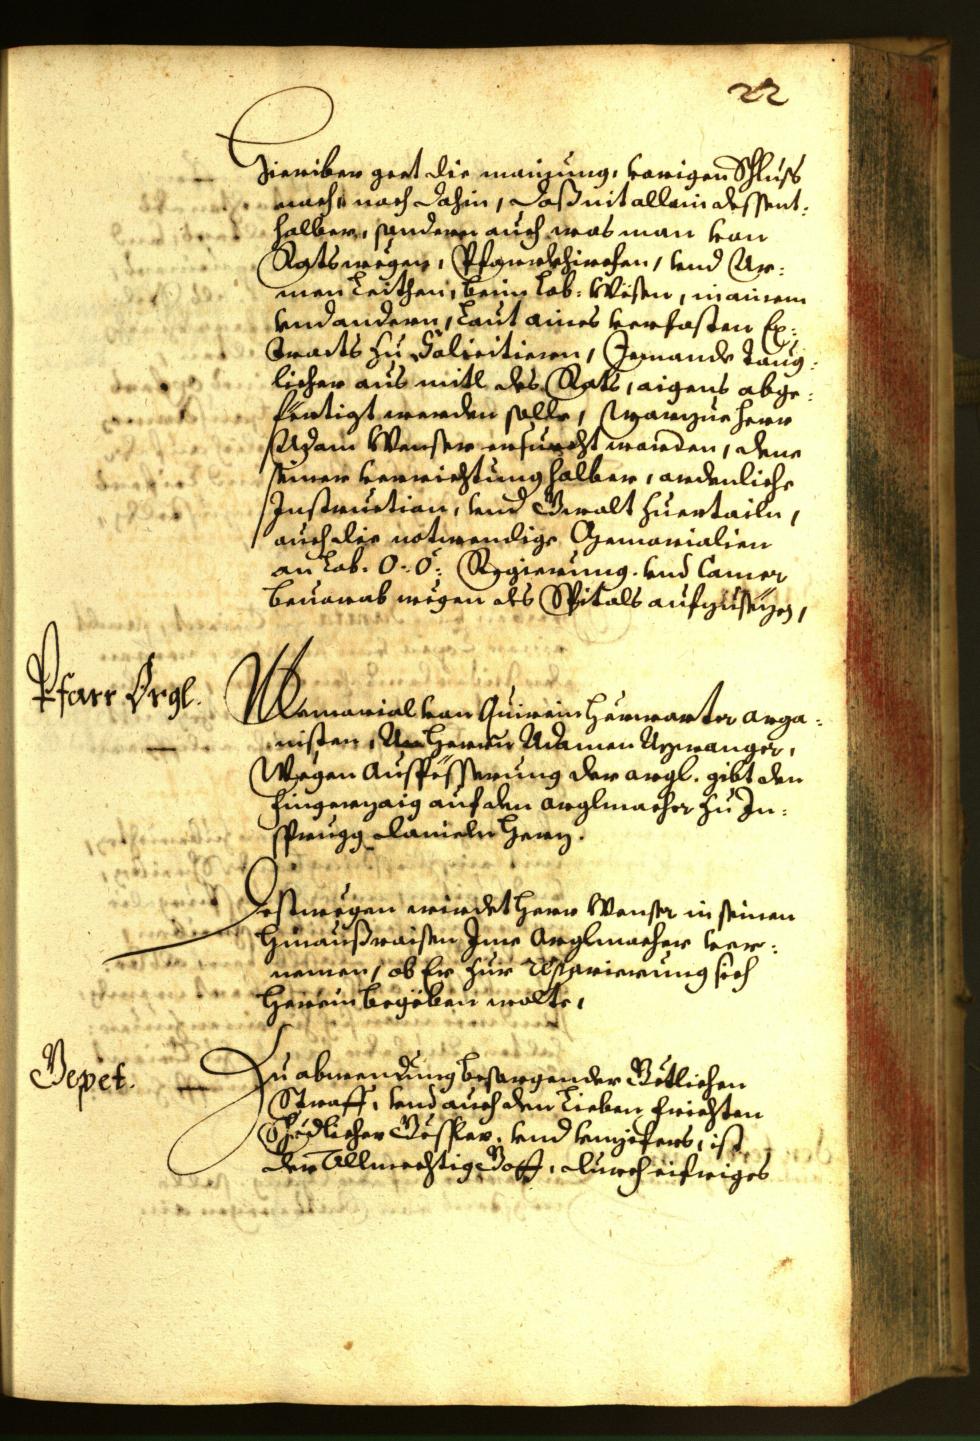 22
Hieriber geet die mainung, vorigen Schluss
nach, noch dahin, das nit allain dessent:
halber, sondern auch was man von
Rats wegen, Pfarrkhirchen, vnd Ar:
men Leithen, beim Lob: Wesen, in ainem
vnd andern, laut aines verfasten Ex:
tracts zu Solicitiern, Jemandt taug:
licher aus mitl des Rats, aigens abge:
fertigt werden solle, warzue Herr
Adam Wenser ersuecht worden, deme
seiner verrichtung halber, ordenliche
Instruction, vnd Gwalt zuertailn,
auch die notwendige Memorialien
an Lob. O: Ö: Regierung vnd Camer
beuorab wegen des Spitals aufzusezen,
Pfarr Orgl.
Memorial von Quirein Herwarter orga:
nisten, An Herrn Adamen
Wegen Ausspesserung der orgl. gibt den
fingerzaig auf den orglmacher zu In:
sprugg Danieln Herz.
Destwegen wirdet Herr Wenser in seinen
hinausraisen Jme Orglmacher ver:
nemen, ob Er zur sich
herein begeben wolte,
Gepet.
Zu abwendung besorgender Götlichen
Straff, vnd auch den lieben frichten
schedlicher Gwsser, vnd vnzifers, ist
der Allmechtig Gott, durch eifriges